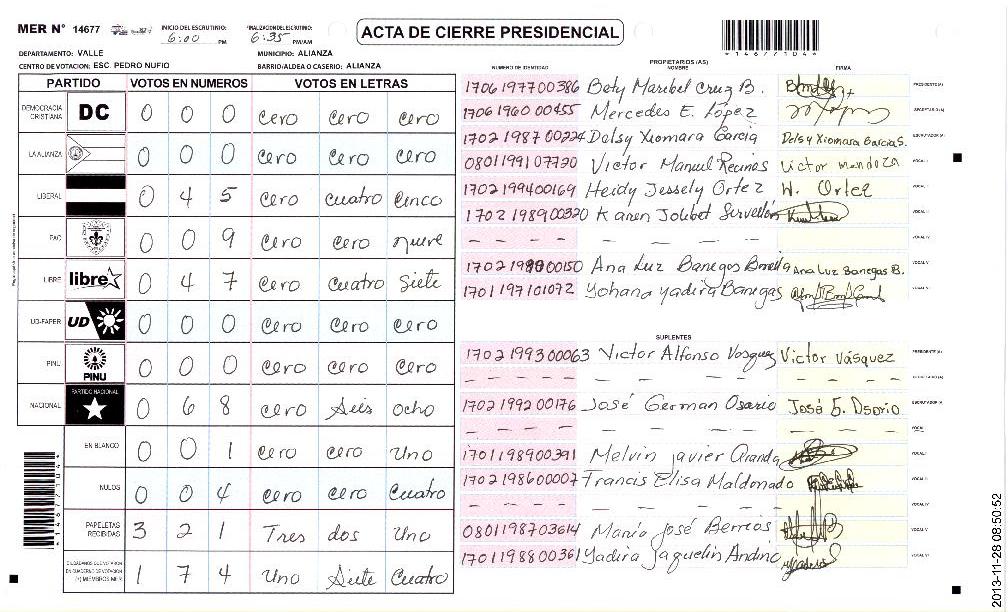 MER N° 14677 INICIO DEL ESCRUTINIO: 6:00 PM FINALIZACION DEL ESCRUTINIO: 6:35 PM/AM
ACTA DE CIERRE PRESIDENCIAL
*14677104*
DEPARTAMENTO: VALLE MUNICIPIO: ALIANZA
CENTRO DE VOTACION: ESC. PEDRO NUFIO BARRIO/ALDEA O CASERIO: ALIANZA
PARTIDO VOTOS EN NUMEROS VOTOS EN LETRAS
DEMOCRACIA CRISTIANA DC 0 0 0 cero cero cero
LA ALIANZA 0 0 0 cero cero cero
LIBERAL 0 4 5 cero cuatro cinco
PAC 0 0 9 cero cero nueve
LIBRE libre 0 4 7 cero cuatro siete
UD-FAPER UD 0 0 0 cero cero cero
PINU PINU 0 0 0 cero cero cero
NACIONAL PARTIDO NACIONAL 0 6 8 cero seis ocho
EN BLANCO 0 0 1 cero cero uno
NULOS 0 0 4 cero cero cuatro
PAPELETAS RECIBIDAS 3 2 1 Tres dos uno
CIUDADANOS QUE VOTARON
EN CUADERNO DE VOTACION
(+) MIEMBROS MER 1 7 4 uno siete cuatro
PROPIETARIOS (AS)
NUMERO DE IDENTIDAD NOMBRE FIRMA
1706197700386 Bety Maribel Cruz B. PRESIDENTE (A)
1706196000455 Mercedes E. López SECRETARIO (A)
1702198700224 Delsy Xiomara Garcia Delsy Xiomara Garcia S. ESCRUTADOR (A)
0801199107720 Victor Manuel Recinos Victor Mendoza VOCAL I
1702199400169 Heidy Jessely Ortez H. Ortez VOCAL II
1702198900320 Karen VOCAL III
– – – – – VOCAL IV
Ana Luz Banegas Ana Luz Banegas B. VOCAL V
1701197101072 Yohana Yadira Banegas VOCAL VI
SUPLENTES
1702199300063 Victor Alfonso Vasquez Victor Vásquez PRESIDENTE (A)
– – – – – SECRETARIO (A)
1702199200176 José German Osorio José G. Osorio ESCRUTADOR (A)
– – – – – VOCAL I
1701198900391 Melvin Javier Aranda VOCAL II
1702198600007 Francis Elisa Maldonado VOCAL III
– – – – – VOCAL IV
0801198703614 Mario José Berrios VOCAL V
1701198800361 Yadira Jaquelin Andino VOCAL VI
*14677104*
2013-11-28 08:50:52